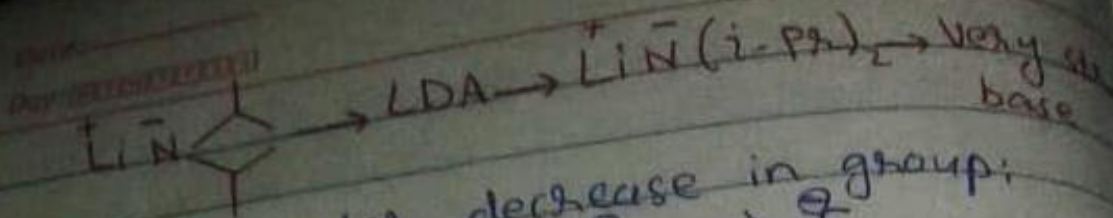 Li⁺ N⁻ → LDA → Li⁺ N⁻ (i-pr)₂ → Very
base
decrease in group: